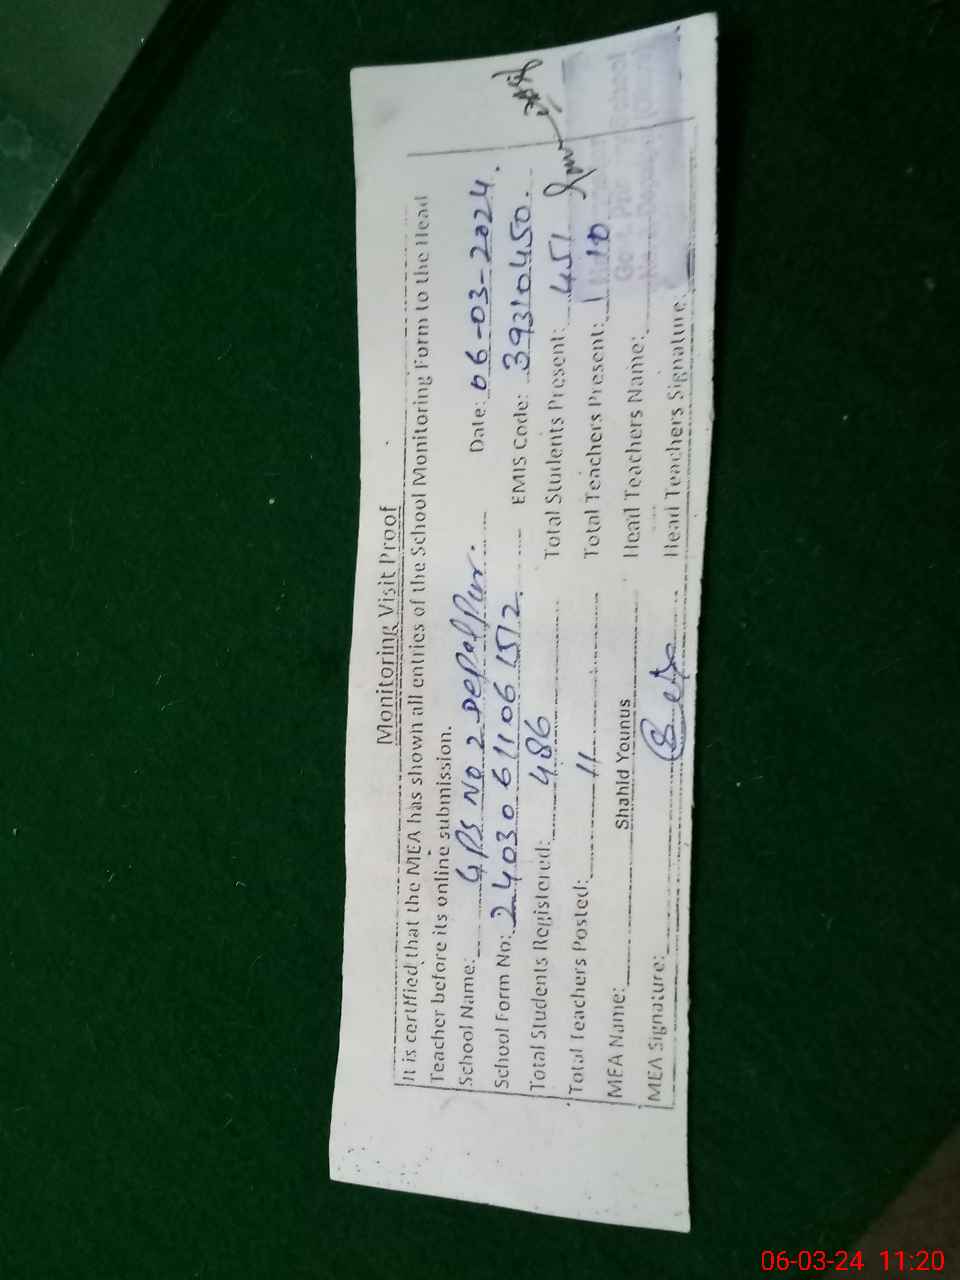 Monitoring Visit Proof
It is certified that the MEA has shown all entries of the School Monitoring Form to the Head
Teacher before its online submission.
School Name: GPS NO 2 Depalpur. Date: 06-03-2024.
School Form No: 24030611061512. EMIS Code: 39310450.
Total Students Registered: 486 Total Students Present: 451
Total Teachers Posted: 11 Total Teachers Present: 10
MEA Name: Shahid Younus Head Teachers Name:
MEA Signature: Head Teachers Signature:
06-03-24 11:20